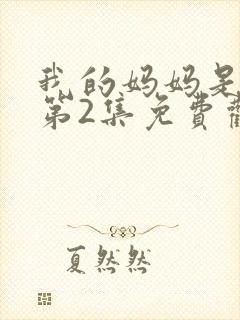 我的妈妈是
第2集免费
夏然然